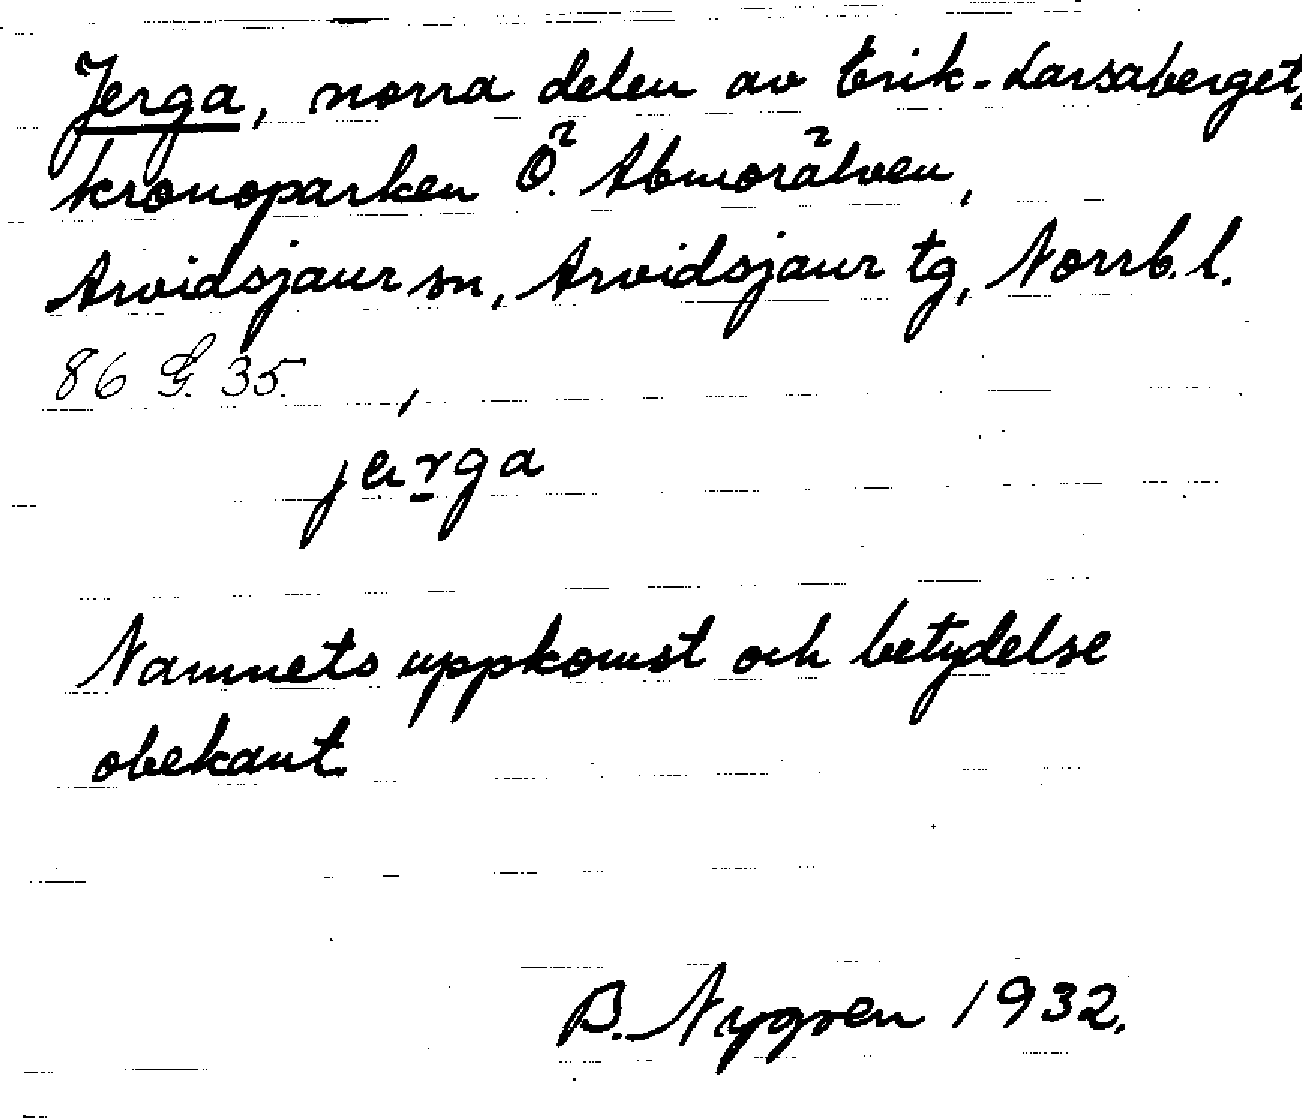 Jerga, norra delen av Erik-Larsaberget,
kronoparken Ö. Abmorälven,
Arvidsjaur sn, Arvidsjaur tg, Norrb. l.
86 G. 35.
jærga
Namnets uppkomst och betydelse
obekant.
B. Nygren 1932.